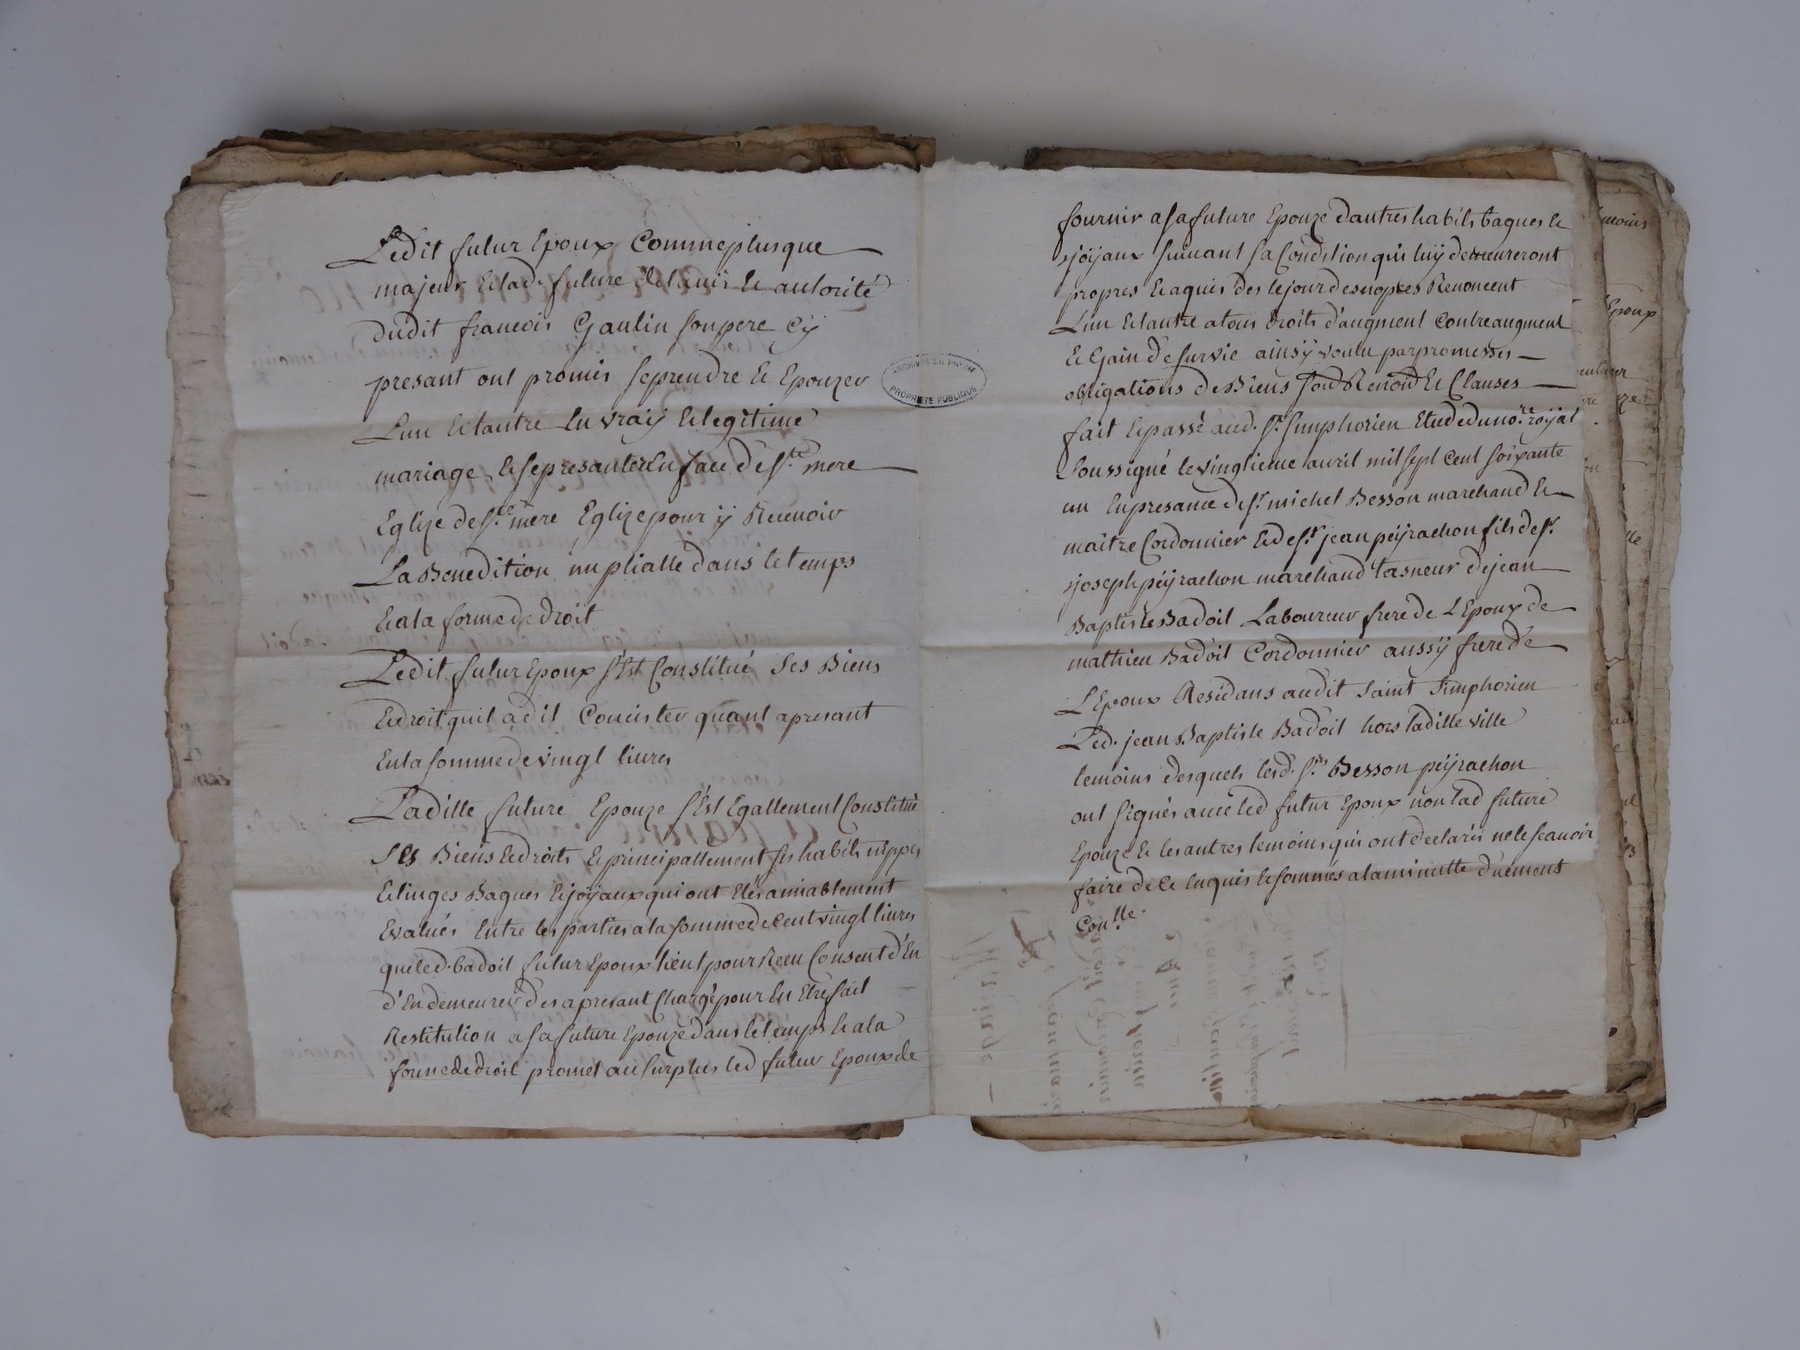 Ledit futur Epoux Comme plus que
majeur Et lad. future de lavis Et autorité
dudit francois Gaulin son pere Cÿ
presant ont promis se prendre Et Epouzer
Lun Et lautre En vraÿ Et legitime
mariage, Et se presanter En face de Ste mere
Eglize de Ste mere Eglize pour ÿ Recevoir
La Benedition nuptialle dans le temps
Et a la forme de droit
Ledit futur Epoux s'Est Constitué Ses Biens
Et droit quil a dit Concister quant a presant
En la somme de vingt livres
Laditte future Epouze s'Est Egallement Constitué
Ses Biens Et droits Et principallement ses habits nippes
Et linges Bagues Et joÿaux qui ont Etés amiablement
Evalués Entre les parties a la somme de Cent vingt livres
que led. badoit futur Epoux tient pour Receu Consent d'En
d'En demeurer des a presant Chargé pour En Etre fait
Restitution a sa future Epouze dans le temps Et a la
forme de droit promet au surplus led futur Epoux de
ARCHIVES DU RHONE
PROPRIÉTÉ PUBLIQUE
fournir a sa future Epouze dautres habits bagues Et
joÿaux suivant sa Condition qui luÿ demeureront
propres Et aquis des le jour des nopces Renoncent
Lun Et lautre a tous droits d'augment Contreaugment
Et Gain de survie ainsÿ voulu par promesses
obligations des Biens Renon Et Clauses
fait Et passé aud. St. Simphorien Etude du nore. roÿal
soussigné le vingtieme avril mil sept Cent soixante
un En presance de sr. michel Besson marchand Et
maître Cordonnier Et de sr. jean peÿrachon fils de sr.
joseph peÿrachon marchand taneur de jean
Baptiste Badoit Laboureur frere de L'Epoux de
mathieu Badoit Cordonnier aussÿ frere de
L'Epoux Residans audit Saint Simphorien
Led. jean Baptiste Badoit hors laditte ville
temoins desquels lesd. srs Besson peÿrachon
ont signés avec led futur Epoux non lad future
Epouze Et les autres temoins qui ont declarés ne le scavoir
faire de ce Enquis Et sommés a la minutte duement
Conlle